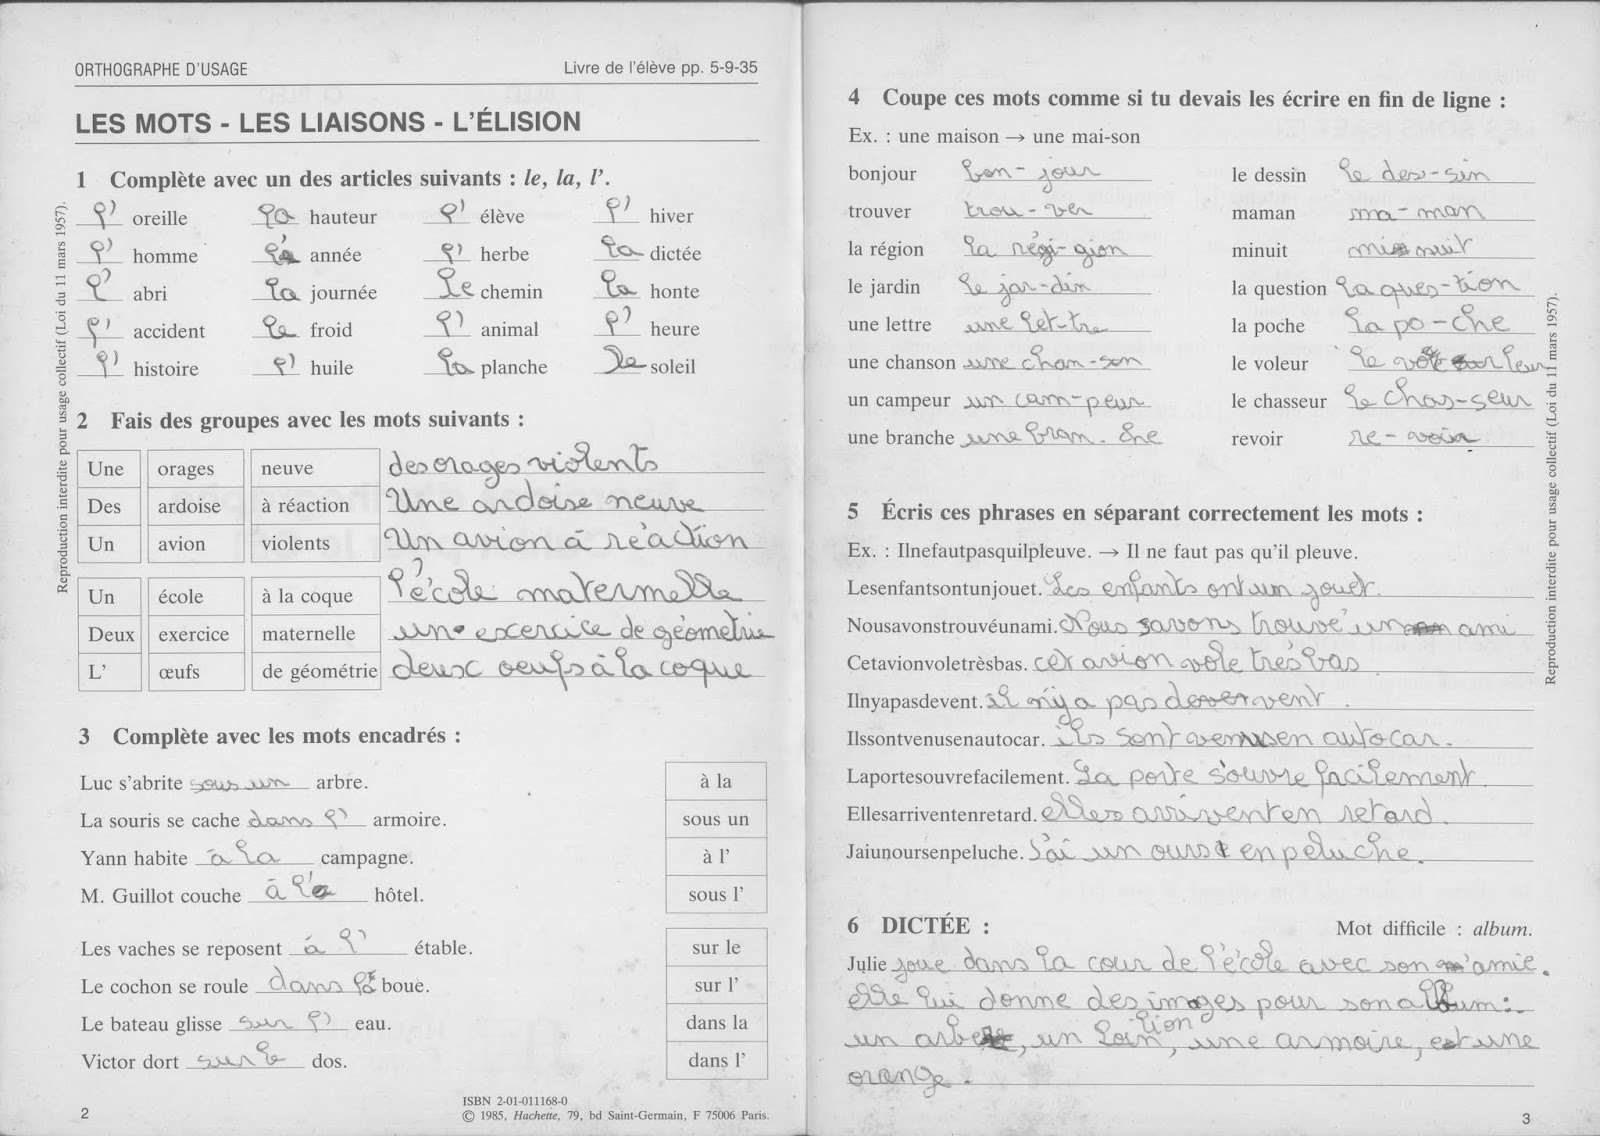 ORTHOGRAPHE D'USAGE
Livre de l'élève pp. 5-9-35
LES MOTS - LES LIAISONS - L'ÉLISION
1 Complète avec un des articles suivants : le, la, l'.
l' oreille la hauteur l' élève l' hiver
l' homme l'a année l' herbe la dictée
l' abri la journée le chemin la honte
l' accident le froid l' animal l' heure
l' histoire l' huile la planche le soleil
2 Fais des groupes avec les mots suivants :
Une orages neuve des orages violents
Des ardoise à réaction Une ardoise neuve
Un avion violents Un avion à réaction
Un école à la coque l'école maternelle
Deux exercice maternelle un exercice de géométrie
L' œufs de géométrie deux oeufs à la coque
3 Complète avec les mots encadrés :
Luc s'abrite sous un arbre. à la
La souris se cache dans l' armoire. sous un
Yann habite à la campagne. à l'
M. Guillot couche à l' hôtel. sous l'
Les vaches se reposent à l' étable. sur le
Le cochon se roule dans la boue. sur l'
Le bateau glisse sur l' eau. dans la
Victor dort sur le dos. dans l'
ISBN 2-01-011168-0
© 1985, Hachette, 79, bd Saint-Germain, F 75006 Paris.
2
Reproduction interdite pour usage collectif (Loi du 11 mars 1957).
4 Coupe ces mots comme si tu devais les écrire en fin de ligne :
Ex. : une maison → une mai-son
bonjour bon-jour le dessin le des-sin
trouver trou-ver maman ma-man
la région la régi-gion minuit mi nuit
le jardin le jar-din la question la ques-tion
une lettre une let-tre la poche la po-che
une chanson une chan-son le voleur le vo leur
un campeur un cam-peur le chasseur le chas-seur
une branche une bran-che revoir re-voir
5 Écris ces phrases en séparant correctement les mots :
Ex. : Ilnefautpasquilpleuve. → Il ne faut pas qu'il pleuve.
Lesenfantsontunjouet. Les enfants ont un jouet.
Nousavonstrouvéunami. Nous avons trouvé un ami
Cetavionvoletrèsbas. cet avion vole très bas
Ilnyapasdevent. il n'y a pas de vent.
Ilssontvenusenautocar. ils sont venus en autocar.
Laportesouvrefacilement. La porte s'ouvre facilement.
Ellesarriventenretard. elles arrivent en retard.
Jaiunoursenpeluche. J'ai un ours en peluche.
6 DICTÉE :
Mot difficile : album.
Julie joue dans la cour de l'école avec son amie.
elle lui donne des images pour son album:
un arbre, un lion, une armoire, et une
orange.
3
Reproduction interdite pour usage collectif (Loi du 11 mars 1957).